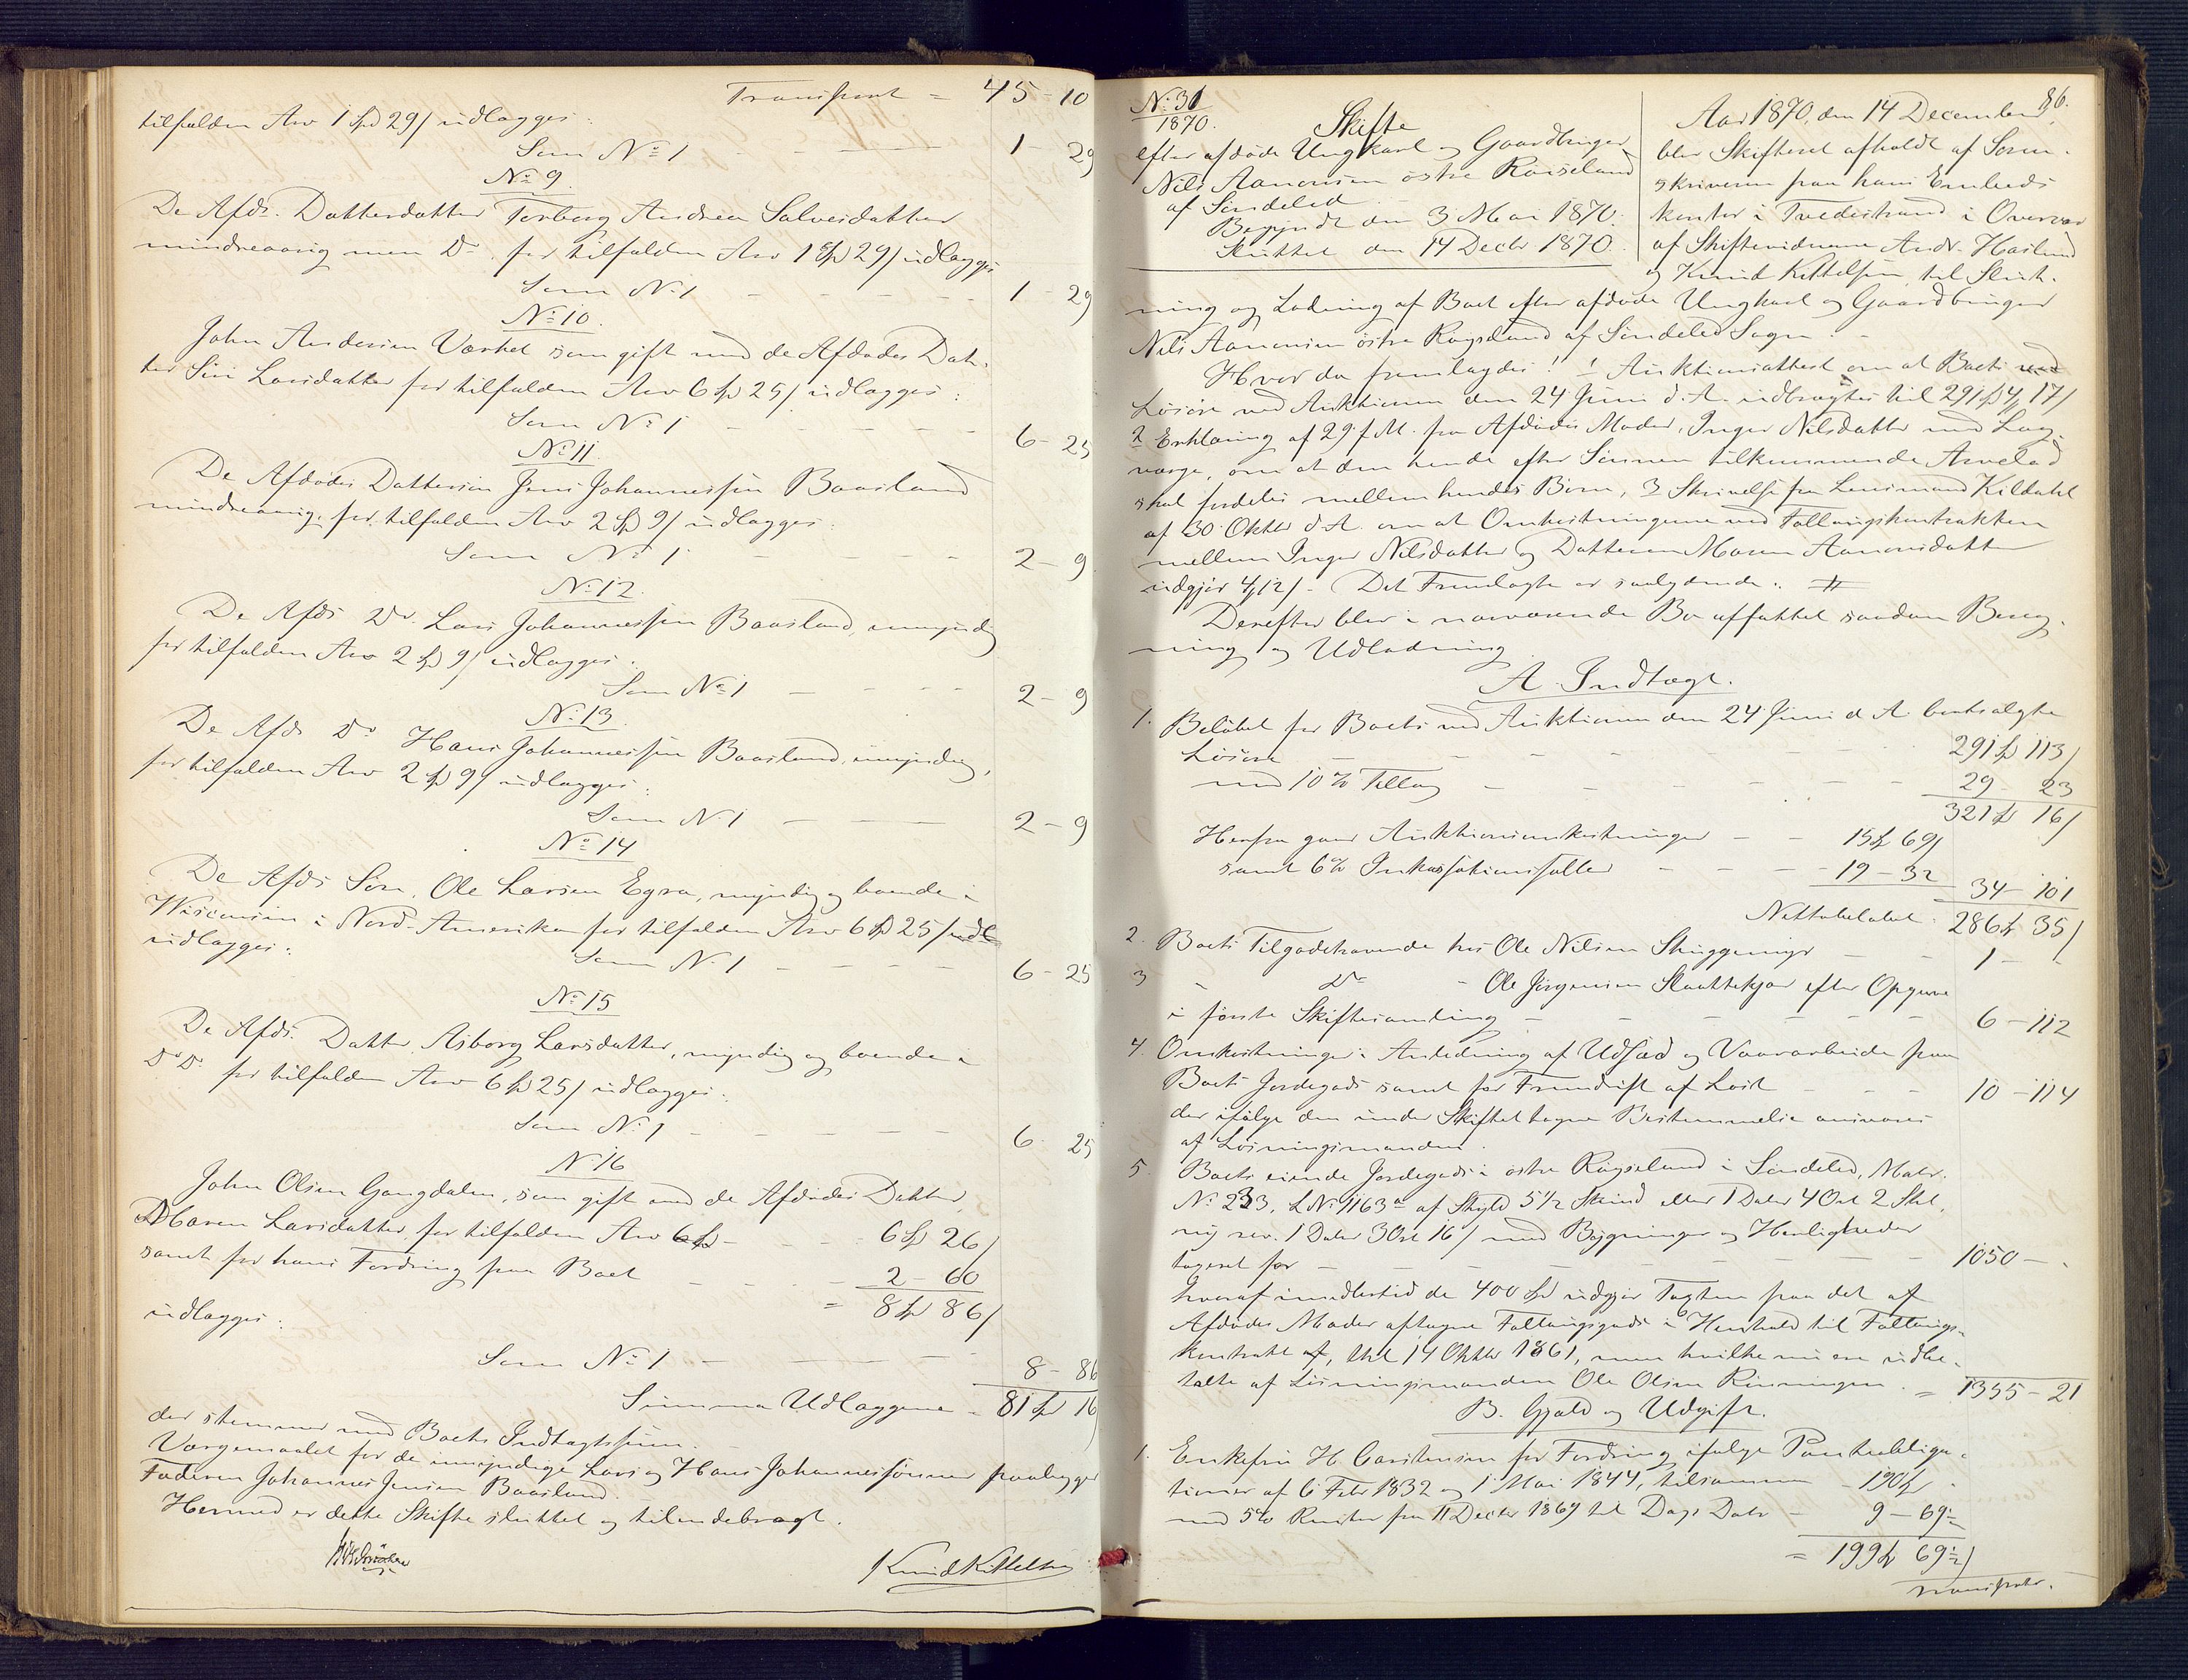 Transport = 45-10
tilfalden Arv 1 Spd 29 ß udlægges:
Som No 1 - - 1 29
No 9.
De Afdr. Datterdatter Torborg Andrea Salvesdatter
mindreaarig men Do. for tilfalden Arv 1 Spd 29 ß udlægges
Som No 1 - - - - 1 29
No 10.
John Andersen Værket som gift med de Afdødes Dat-
ter Siri Larsdatter for tilfalden Arv 6 Spd 25 ß udlægges:
Som No 1 - - - - 6-25
No 11.
De Afdødes Dattersøn Jens Johannessen Baasland
mindreaarig, for tilfalden Arv 2 Spd 9 ß udlægges:
Som No 1 - - - 2-9
No 12.
De Afds Do. Lars Johannessen Baasland, umyndig
for tilfalden Arv 2 Spd 9 ß udlægges:
Som No 1 - - - - 2-9
No 13.
De Afds Do Hans Johannessen Baasland, umyndig,
for tilfalden Arv 2 Spd 9 ß udlægges:
Som No 1 - - - 2-9
No 14
De Afds Søn, Ole Larsen Egra, myndig og boende i
Wisconsin i Nord-Amerika for tilfalden Arv 6 Spd 25 ß udl
udlægges:
Som No 1 - - - - 6-25
No 15
De Afds. Datter Asborg Larsdatter, myndig og boende i
Do Do. for tilfalden Arv 6 Spd 25 ß udlægges:
Som No 1 - - - - 6 25
No 16
John Olsen Gangdalen, som gift med de Afdødes Datter,
Maren Larsdatter for tilfalden Arv 6 Spd - - 6 Spd 26 ß
samt for hans Fordring paa Boet - - - 2-60
= 8 Spd 86 ß
udlægges:
Som No 1 - - - 8-86
Summa Udlæggene = 81 Spd 16 ß
der stemmer med Boets Indtægtssum.
Værgemaalet for de umyndige Lars og Hans Johannessønner paalægges
Faderen Johannes Jensen Baasland.
Hermed er dette Skifte sluttet og tilendebragt.
Knud Kittelsen
86.
No 31
1870.
Skifte
efter afdøde Ungkarl og Gaardbruger
Nils Aanonsen østre Røiseland
af Søndeled.
Begyndt den 3 Mai 1870.
Sluttet den 14 Decbr 1870.
Aar 1870, den 14 December,
blev Skifteret afholdt af Soren-
skriveren paa hans Embeds
kontor i Tvedestrand i Overvær
af Skiftevidnerne Andr. Haslund
og Knud Kittelsen, til Slut-
ning og Lodning af Boet efter afdøde Ungkarl og Gaardbruger
Nils Aanonsen østre Røyseland af Søndeled Sogn. -
Hvor da fremlagdes: 1 Auktionsattest om at Boets ved
Løsøre ved Auktionen den 24 Juni d. A. indbragtes til 291 Spd 4 ₰ 17 ß
2 Erklæring af 29 f. M. fra Afdødes Moder, Inger Nilsdatter med Lag-
værge, om at den hende efter Sønnen tilkommende Arvelod
skal fordeles mellem hendes Børn, 3 Skrivelse fra Lensmand Kildahl
af 30 Oktbr d. A. om at Omkostningerne ved Føllaugskontrakten
mellem Inger Nilsdatter og Datteren Maren Aanonsdatter
udgjør 4 ₰ 12 ß. - Det Fremlagte er saalydende: #
Derefter blev i nærværende Bo affattet saadan Bereg-
ning og Udlodning
A. Indtægt.
1. Beløbet for Boets ved Auktionen den 24 Juni d. A. bortsolgte
Løsøre - - - - - - 291 Spd 113 ß
med 10% Tillæg - - - - - 29 - 23
321 Spd 16 ß
Herfra gaar Auktionsomkostninger - - 15 Spd 69 ß
samt 6% Inkassationssaller - - - - 19-32 34-101
Nettobeløbet. 286 Spd 35 ß
2. Boets Tilgodehavende hos Ole Nilsen Skuggenings - - 1 - -
3 - Do - Ole Jørgensen Slaattekjær efter Opgave
i første Skiftesamling - - - - - - 6-112
4. Omkostninger i Anledning af Udsæd og Vaararbeide paa
Boets Jordegods samt for Fremdrift af Løst - - - 10-114
der ifølge den under Skiftet tagne Bestemmelse ansvares
af Løsningsmanden.
5. Boets eiende Jordegods i østre Røyseland i Søndeled, Matr.
No 233, L No 1163a af Skyld 5 1/2 Skind eller 1 Daler 4 Ort 2 Skl,
ny rev. 1 Daler 3 Ort 16 ß med Bygninger og Herligheder
taxeret for - - - - - - - 1050 - .
hvoraf imidlertid de 400 Spd udgjør Taxten paa det af
Afdødes Moder aftagne Føllaugsgods i Henhold til Føllaugs-
kontrakt af, thl 14 Oktbr 1861, men hvilke nu ere udbe-
talte af Løsningsmanden Ole Olsen Rinningen. = 1355-21
B. Gjæld og Udgift.
1. Enkefru H. Carstensen for Fordring ifølge Panteobliga-
tioner af 6 Febr 1832 og 1 Mai 1844, tilsammen - 190 Spd.
med 5% Renter fra 11 Decbr 1869 til Dags Dato - 9-69 1/2
= 199 Spd 69 1/2 ß
Transport.